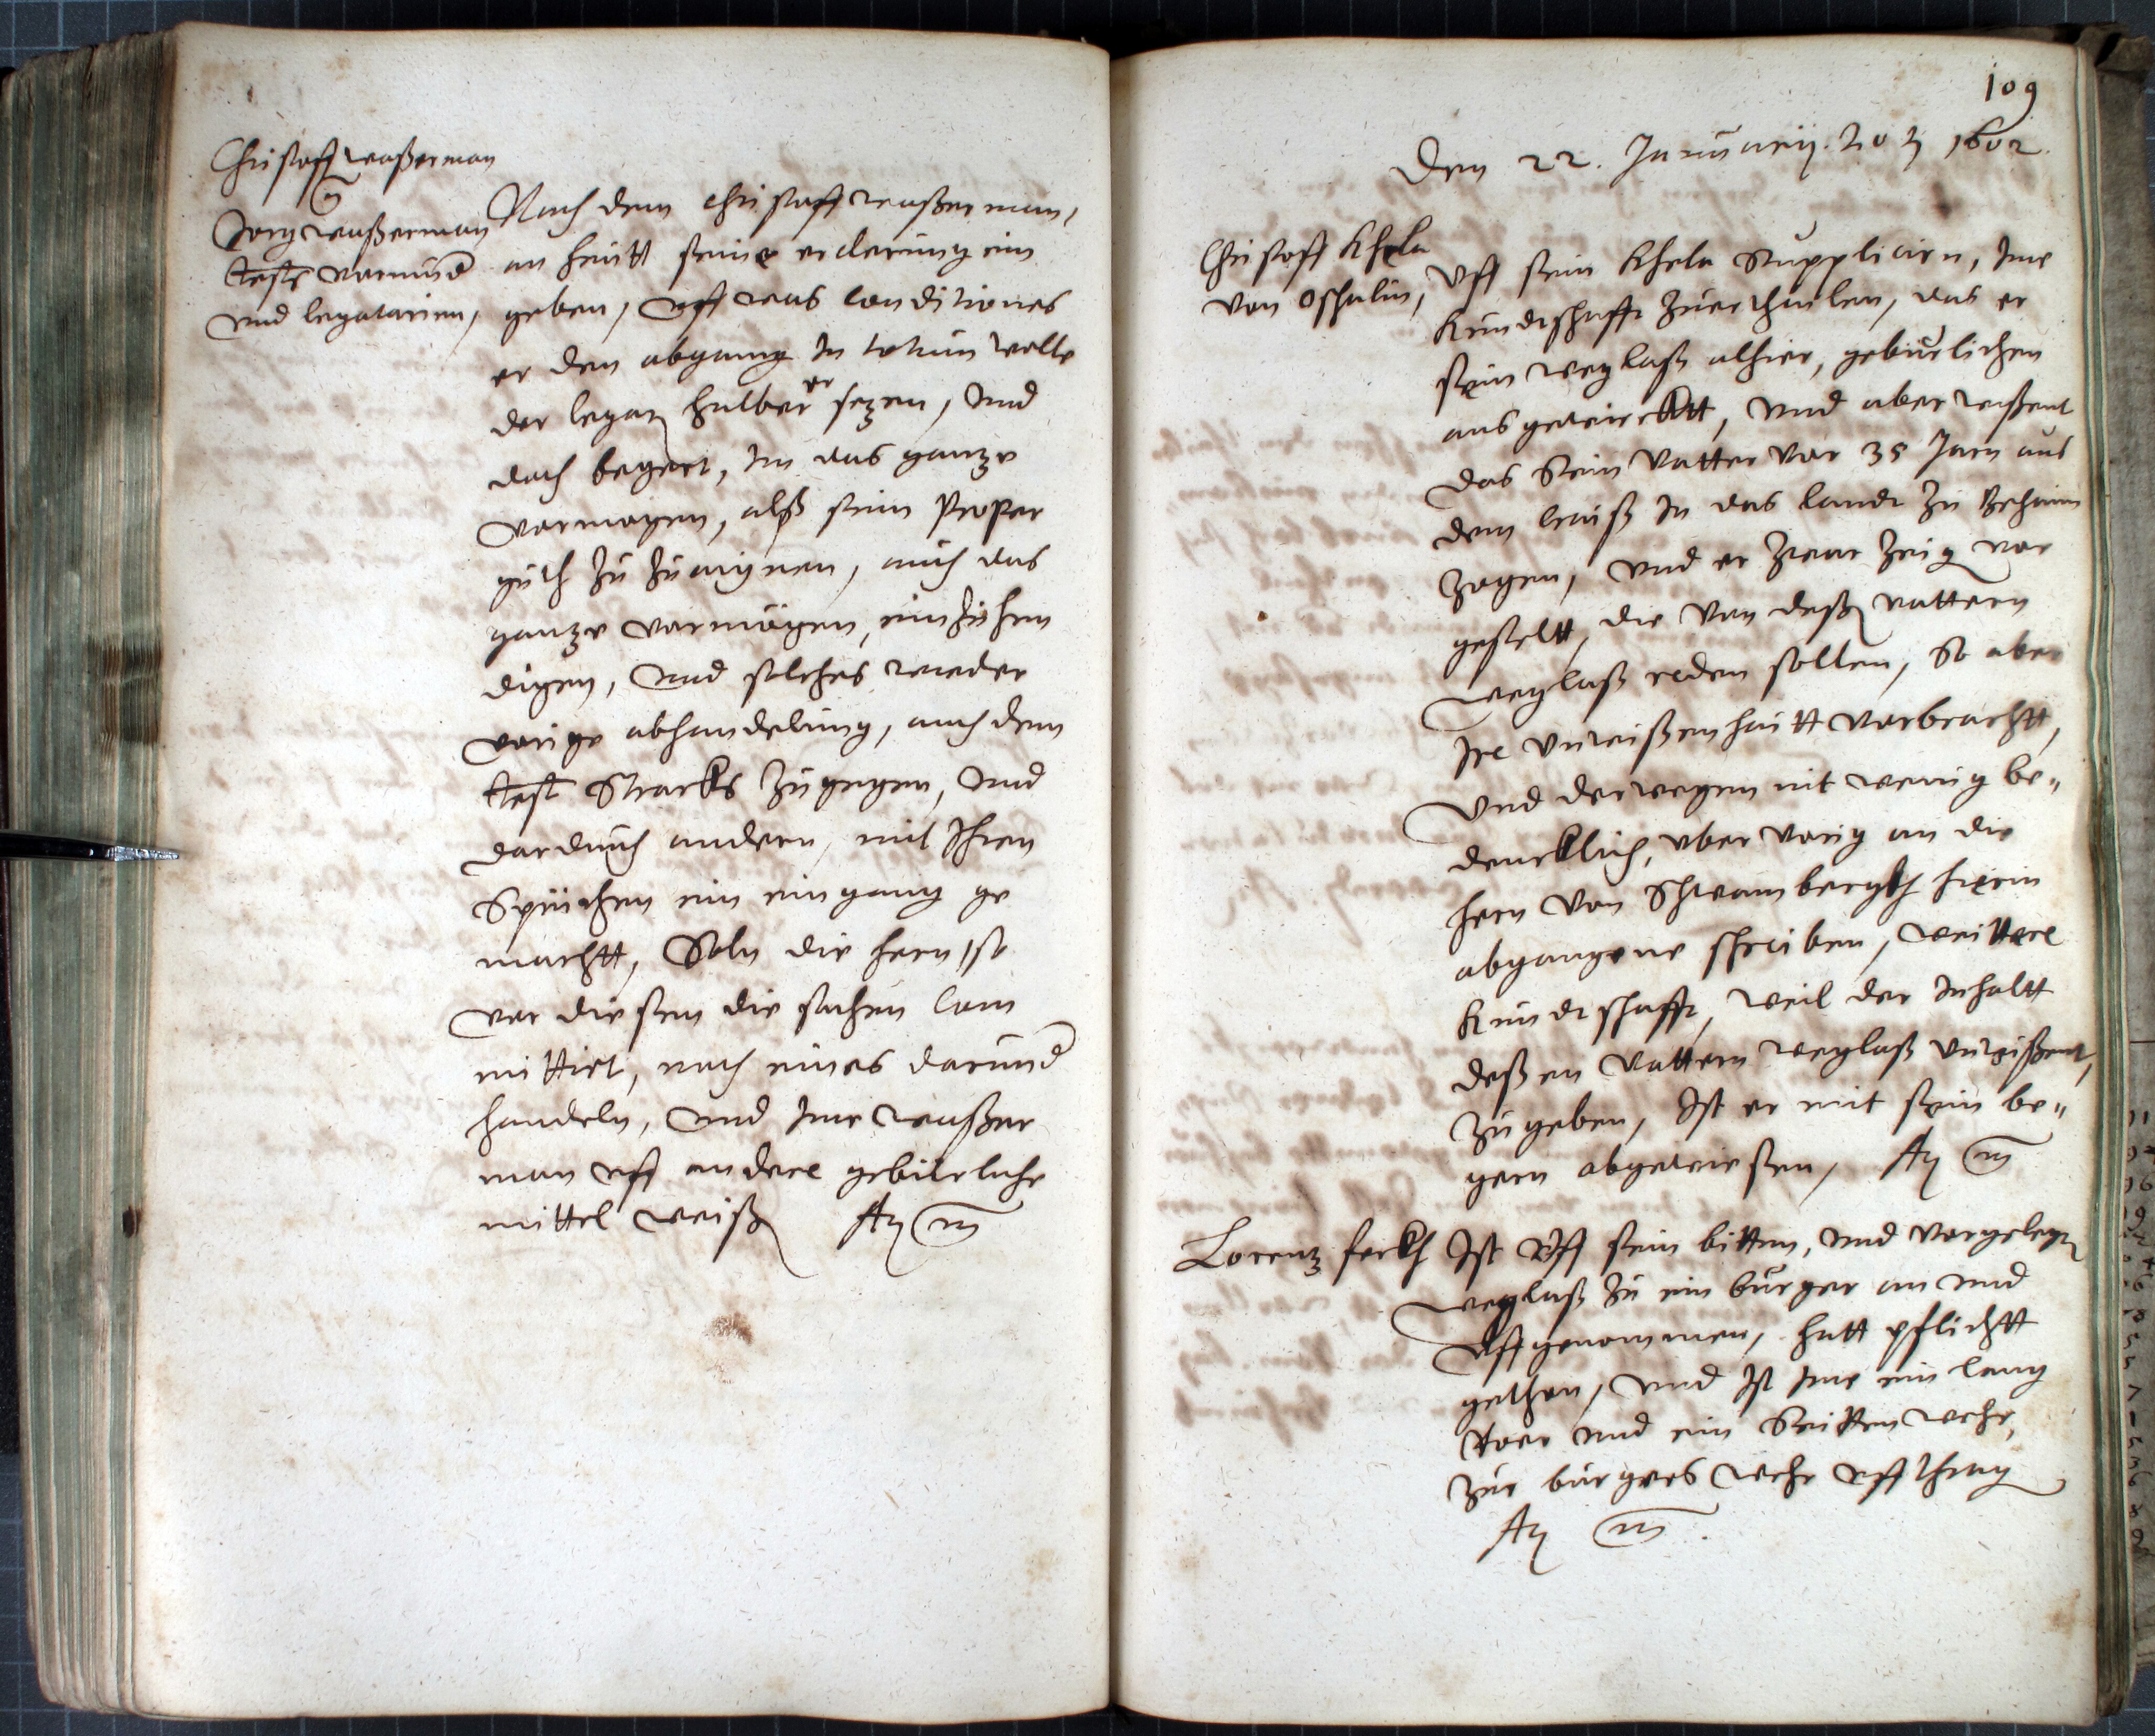 Christoff waßerman
Jorg waßerman
test vormund
und legatarien,
Nach dem Christoff waßerman,
an heutt seine erclerung ein
geben, uff was conditiones
er den abgang In totum wolle
der legat halber er setzen, und
doch begert, Im das gantze
vormogen, alß sein Proper
guth zu zu aignen, auch das
gantze vermögen, ein zu hen
digen, und solches wieder
vorige abhandelung, auch dem
test Stracks zugegen, und
dardurch andern, mit Ihren
Sprüchen ein eingang ge
machtt, Soln die hern so
vor diesem die sachen com
mittirt, noch eines darund
handeln, und Ime waßer
man uff andere gebürliche
mittel weiß
109
Den 22. Januarij. Ao 1602.
Christoff Khela
von Oschalin,
Uff sein Khela Supplicirn, Ime
Kundtschafft zuerthailen, das er
sein weglaß alhier, gebürlichen
ausgewircktt, und aber wißent
das Sein Vatter vor 35 Jarn aus
dem lauß In das landt zu Behaim
zogen, und er zwar Zeug vor
gestelt, die von deß vattern
weglaß reden sollen, So aber
Ire unwißenhaitt vorbrachtt,
Und derwegen nit wenig be„
dencklich, uber vorig an die
hern von Schwambergkh hierin
abgangene schreiben, weittere
Kundtschafft, weil der Inhaltt
deßen vattern weglaß unwißent,
zugeben, Ist er mit sein be„
gern abgewießen,
Lorentz ferkh
Ist Uff sein bitten, und vorgelegt
weglaß zu ein burger an und
Uffgenommen, hatt pflichtt
gethan, und Ist Ime ein lang
Roer und ein Seitten wehr,
zur burgers wehr uff